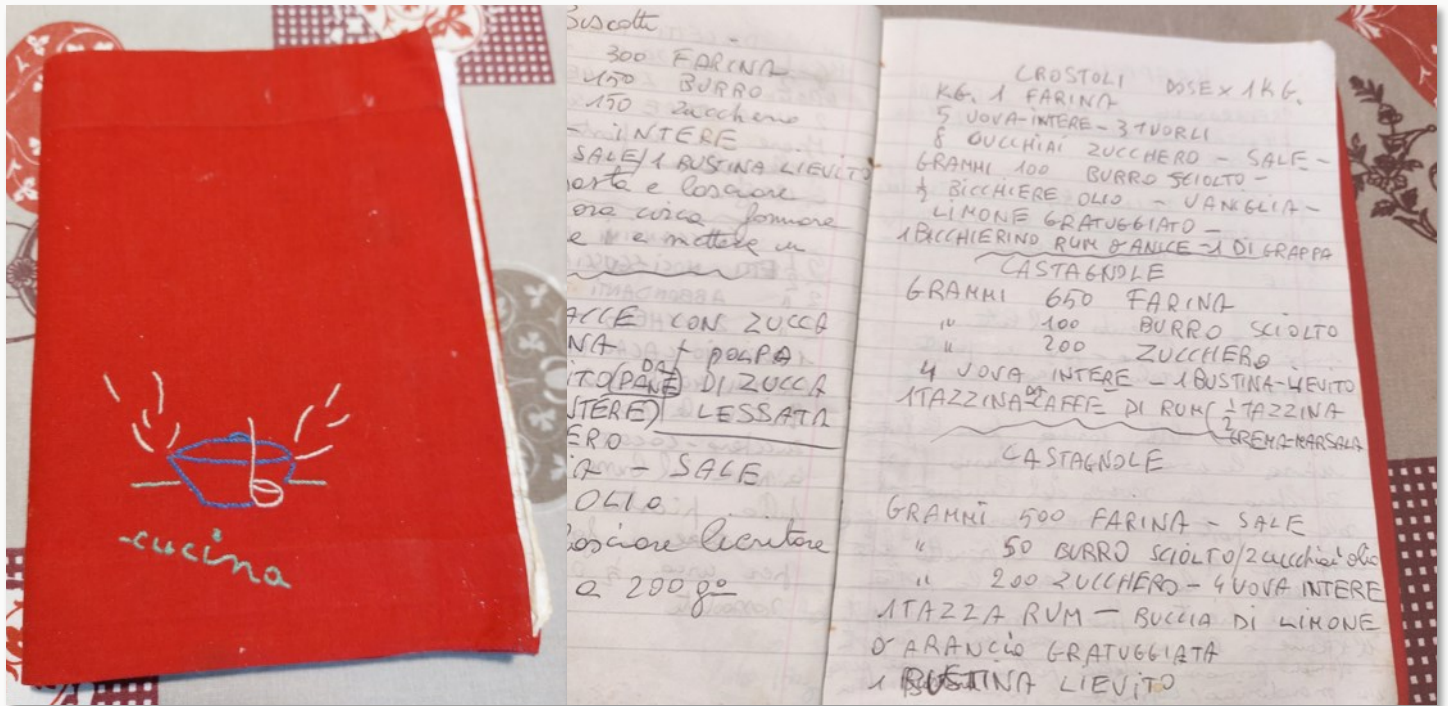 cucina
Biscotti
300 FARINA
150 BURRO
150 zucchero
- INTERE
SALE/1 BUSTINA LIEVITO
pasta e lasciare
ora circa formare
e e mettere in
CON ZUCCA
+ POLPA
DA
(PANE) DI ZUCCA
LESSATA
- SALE
OLIO
lasciare lievitare
a 200 go
CROSTOLI DOSE X 1 KG.
KG. 1 FARINA
5 UOVA-INTERE - 3 TUORLI
8 CUCCHIAI ZUCCHERO - SALE -
GRAMMI 100 BURRO SCIOLTO -
½ BICCHIERE OLIO - VANIGLIA -
LIMONE GRATUGGIATO -
1 BICCHIERINO RUM O ANICE - 1 DI GRAPPA
CASTAGNOLE
GRAMMI 650 FARINA
" 100 BURRO SCIOLTO
" 200 ZUCCHERO
4 UOVA INTERE - 1 BUSTINA-LIEVITO
1 TAZZINA DA CAFFE DI RUM ( ½ TAZZINA
CREMA-MARSALA
CASTAGNOLE
GRAMMI 500 FARINA - SALE
" 50 BURRO SCIOLTO/2 cucchiai olio
" 200 ZUCCHERO - 4 UOVA INTERE
1 TAZZA RUM - BUCCIA DI LIMONE
O ARANCIO GRATUGGIATA
1 BUSTINA LIEVITO